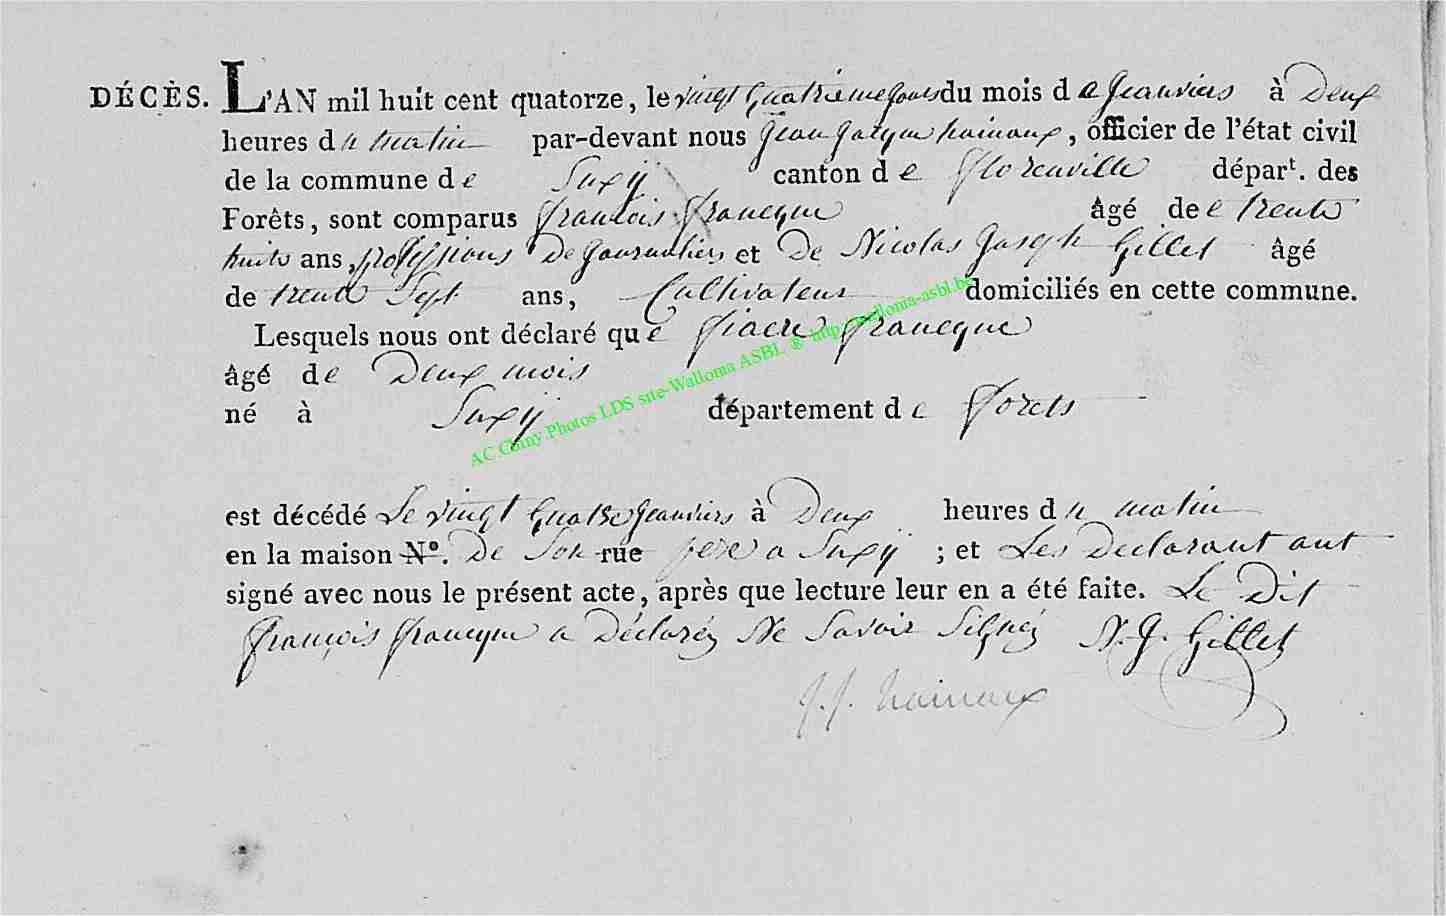 DÉCÈS. L'AN mil huit cent quatorze, le vingt quatrieme jour du mois de Jeanviers à Deux
heures du matin par-devant nous Jean Jacque hainaux, officier de l'état civil
de la commune de Suxÿ canton de florenville départ. des
Forêts, sont comparus francois francque âgé de trente
huite ans, professions De Journaliers et De Nicolas Joseph Gillet âgé
de trente Sept ans, Cultivateur domiciliés en cette commune.
Lesquels nous ont déclaré que fiacre francque
âgé de Deux mois
né à Suxÿ département de forets
est décédé Le vingt quatre Jeanviers à Deux heures du matin
en la maison N°. De Son rue pere a Suxÿ ; et Les Declarant ont
signé avec nous le présent acte, après que lecture leur en a été faite. Le Dit
françois francque a Déclaréz Ne Savoir Signéz N. J. Gillet
J. J. hainaux
AC.Chiny.Photos LDS site-Wallonia ASBL ® http://wallonia-asbl.be